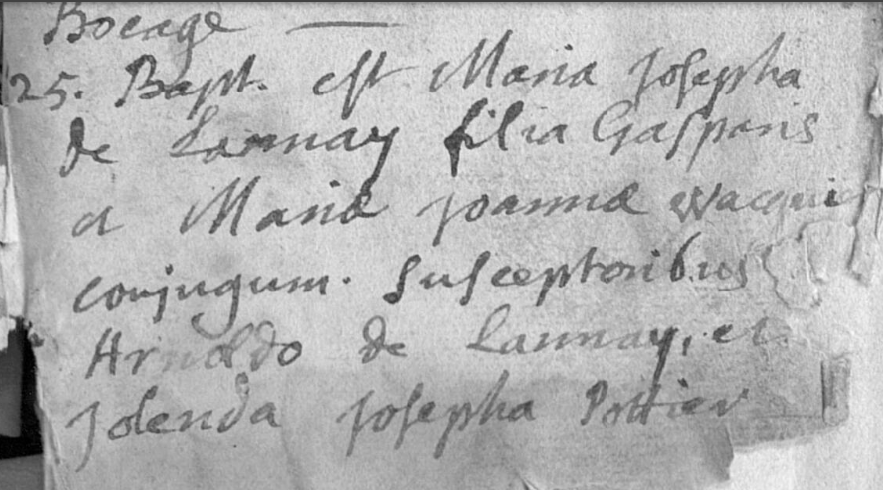 Bocage
25. Bapt. est Maria Josepha
de Launay filia Gasparis
et Mariæ Joannæ Wacquier
conjugum. Susceptoribus
Arnoldo de Launay, et
Jolenda Josepha Pottier